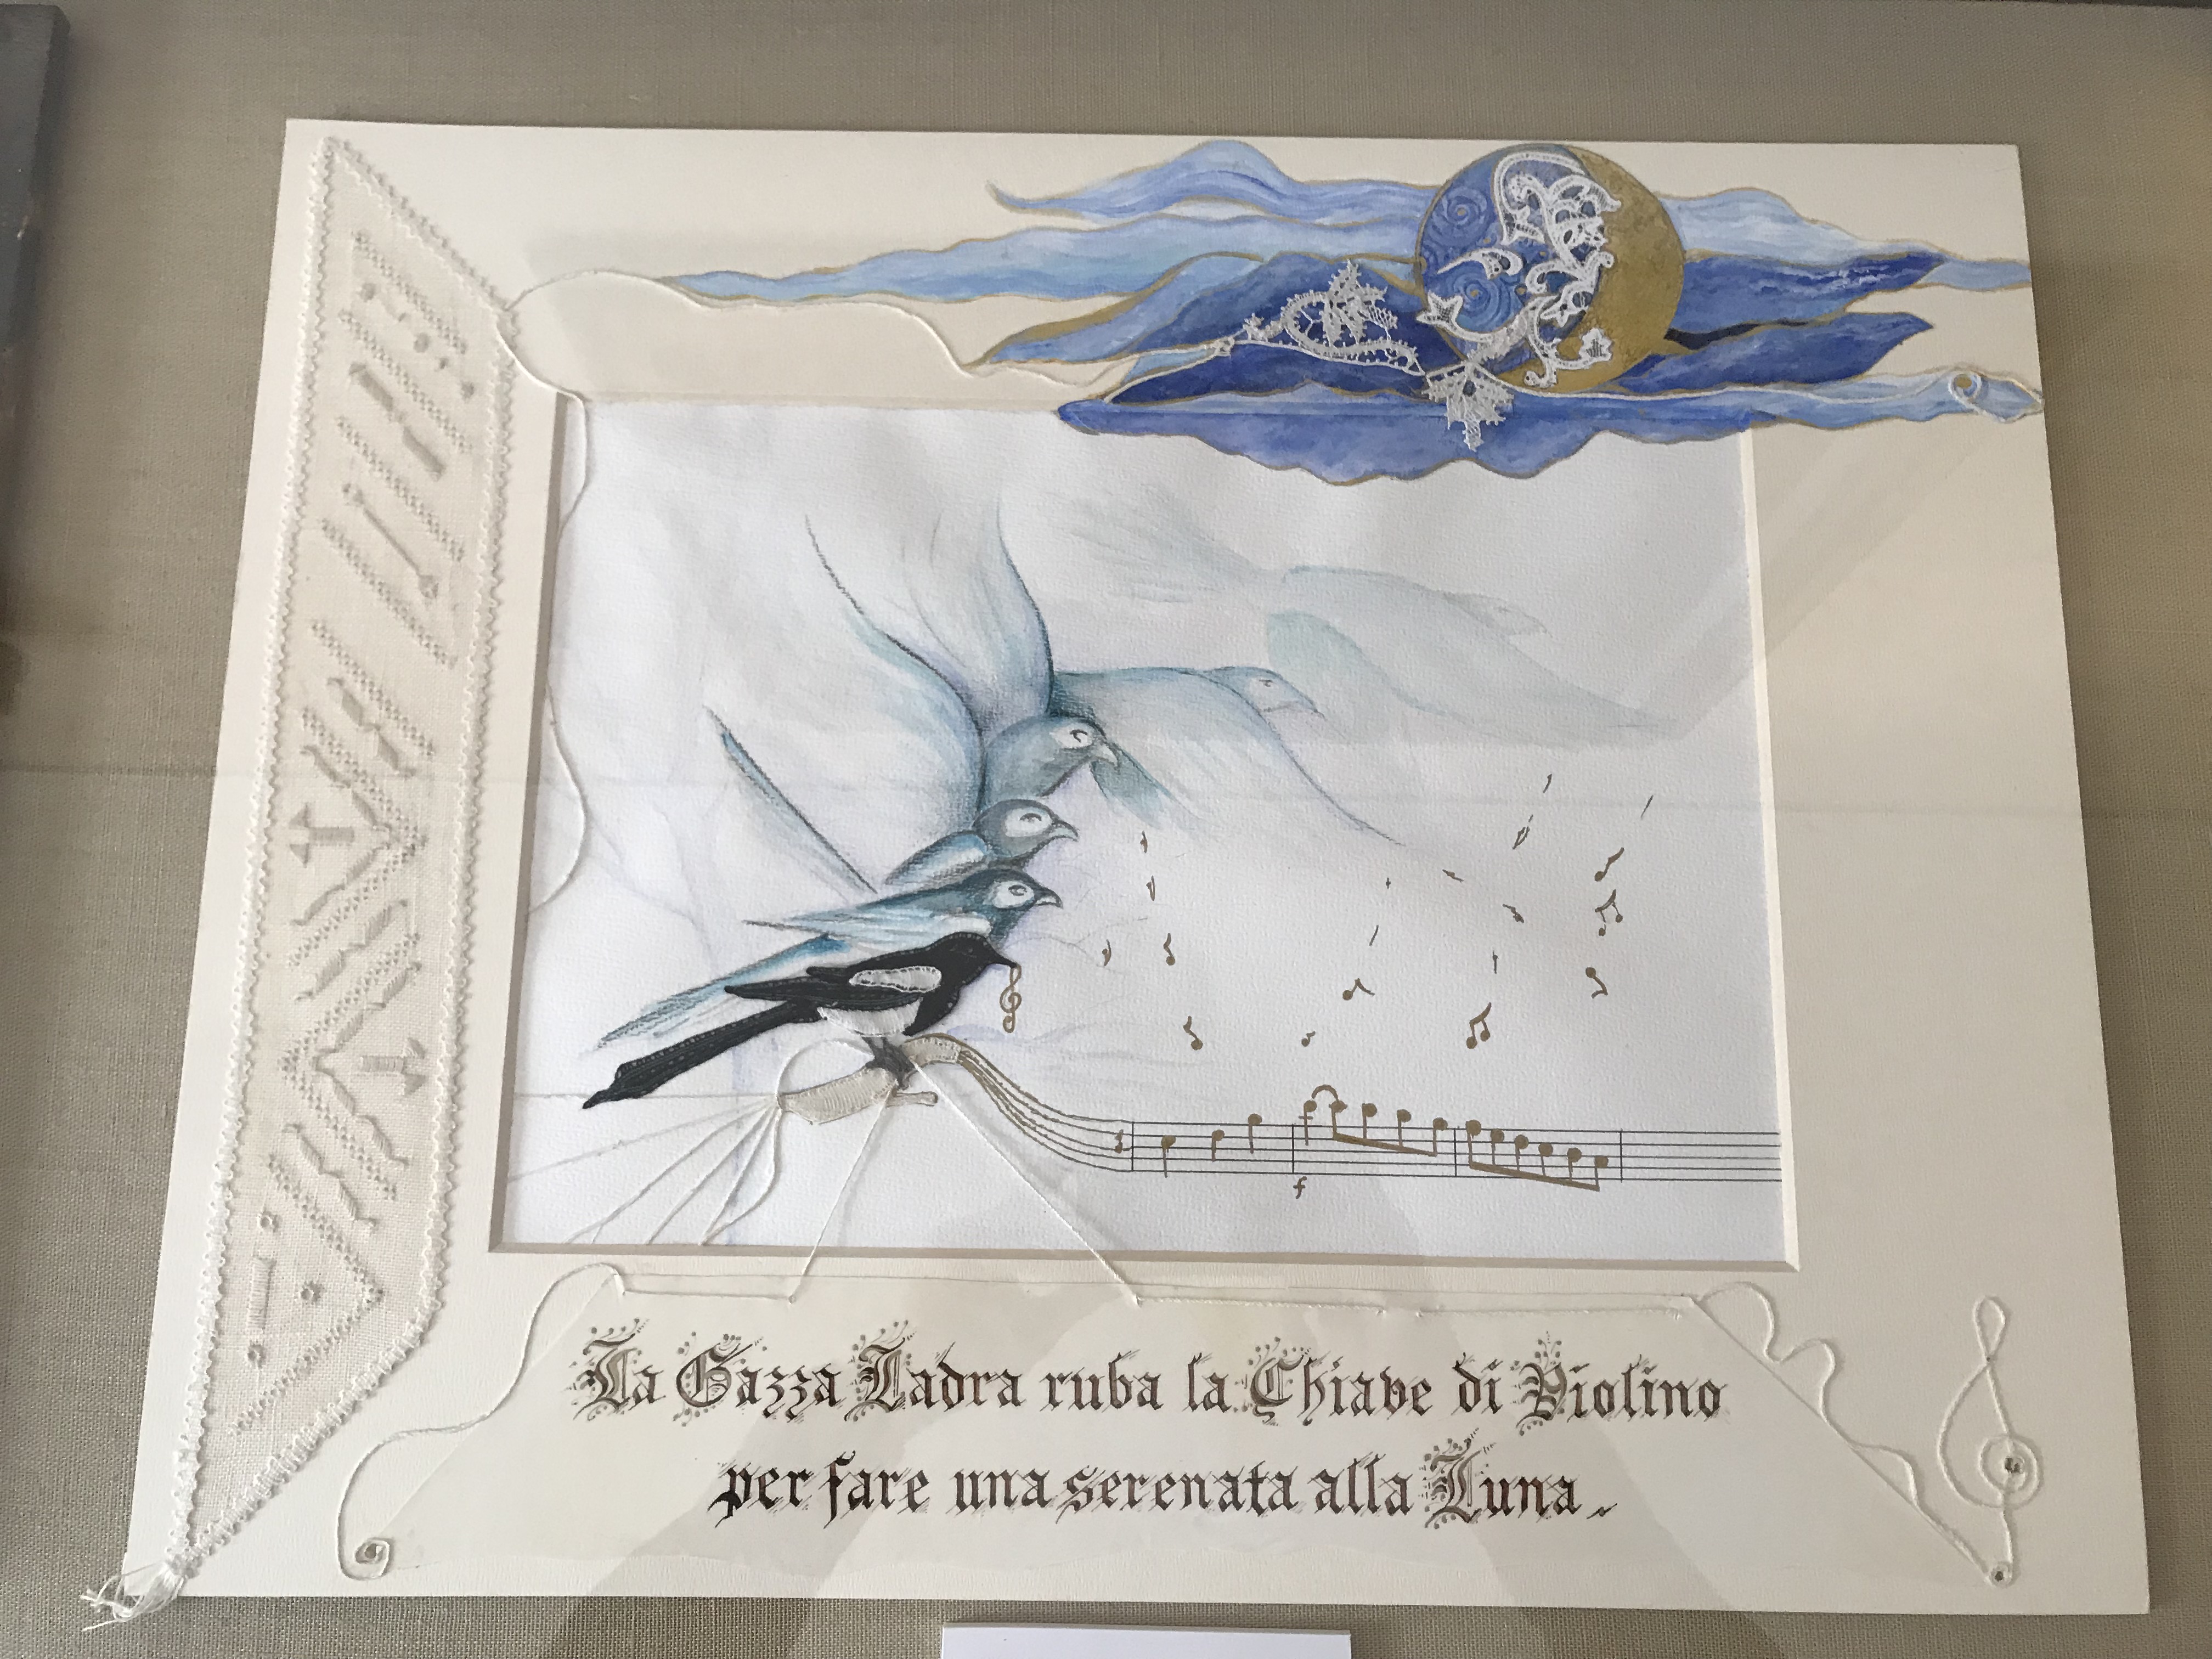 La Gazza Ladra ruba la Chiave di Violino
per fare una serenata alla Luna.
f